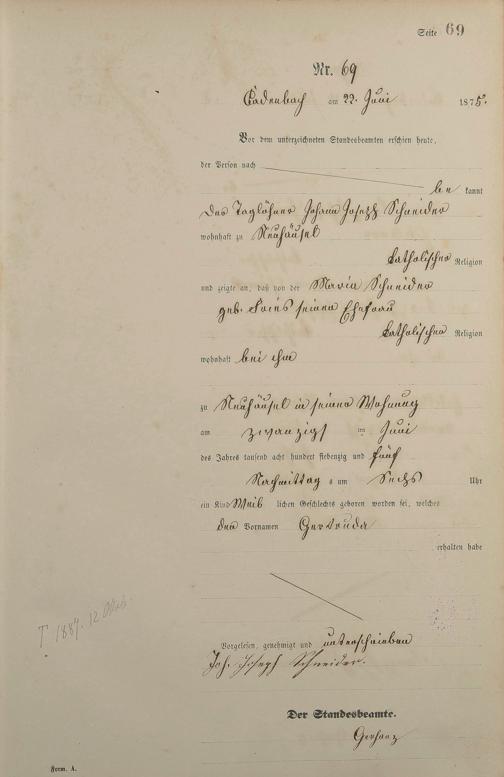 Seite 69
Nr. 69
Cadenbach am 22. Juni 1875.
Vor dem unterzeichneten Standesbeamten erschien heute,
der Person nach
be kannt
der Taglöhner Johann Joseph Schneider
wohnhaft zu Neuhäusel
katholischer Religion
und zeigte an, daß von der Maria Schneider
geb. Fries seiner Ehefrau
katholischer Religion
wohnhaft bei ihm
zu Neuhäusel in seiner Wohnung
am zwanzigst im Juni
des Jahres tausend acht hundert siebenzig und fünf
Nachmittag s um Sechs Uhr
ein Kind Weib lichen Geschlechts geboren worden sei, welches
den Vornamen Gertruda
erhalten habe
T 1887. 12
Vorgelesen, genehmigt und unterschrieben
Joh. Joseph Schneider.
Der Standesbeamte.
Gerharz
Form. A.